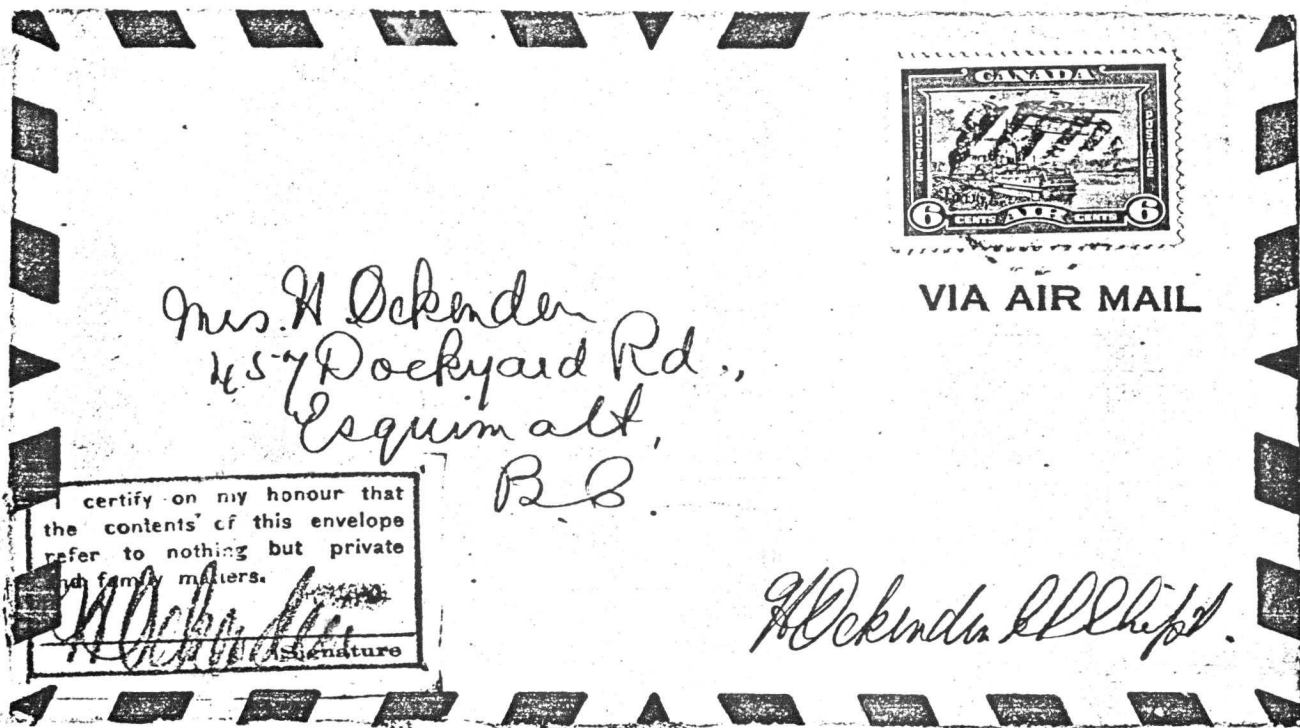 CANADA
POSTES
POSTAGE
6 CENTS AIR CENTS 6
VIA AIR MAIL
Mrs. H Ockenden
457 Dockyard Rd.,
Esquimalt,
B.C.
I certify on my honour that
the contents of this envelope
refer to nothing but private
and family matters.
H Ockenden
Signature
H Ockenden